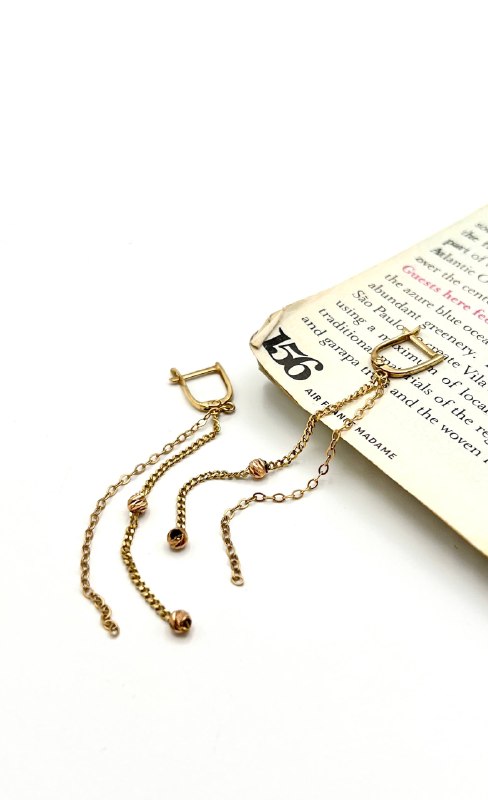 the
part of
Atlantic O
over the cent
Guests here fee
the azure blue ocea
abundant greenery.
São Paulo
ate Vila
using a
of loca
traditional
rials of the reg
and garapa
and the woven
156
AIR FRANCE MADAME